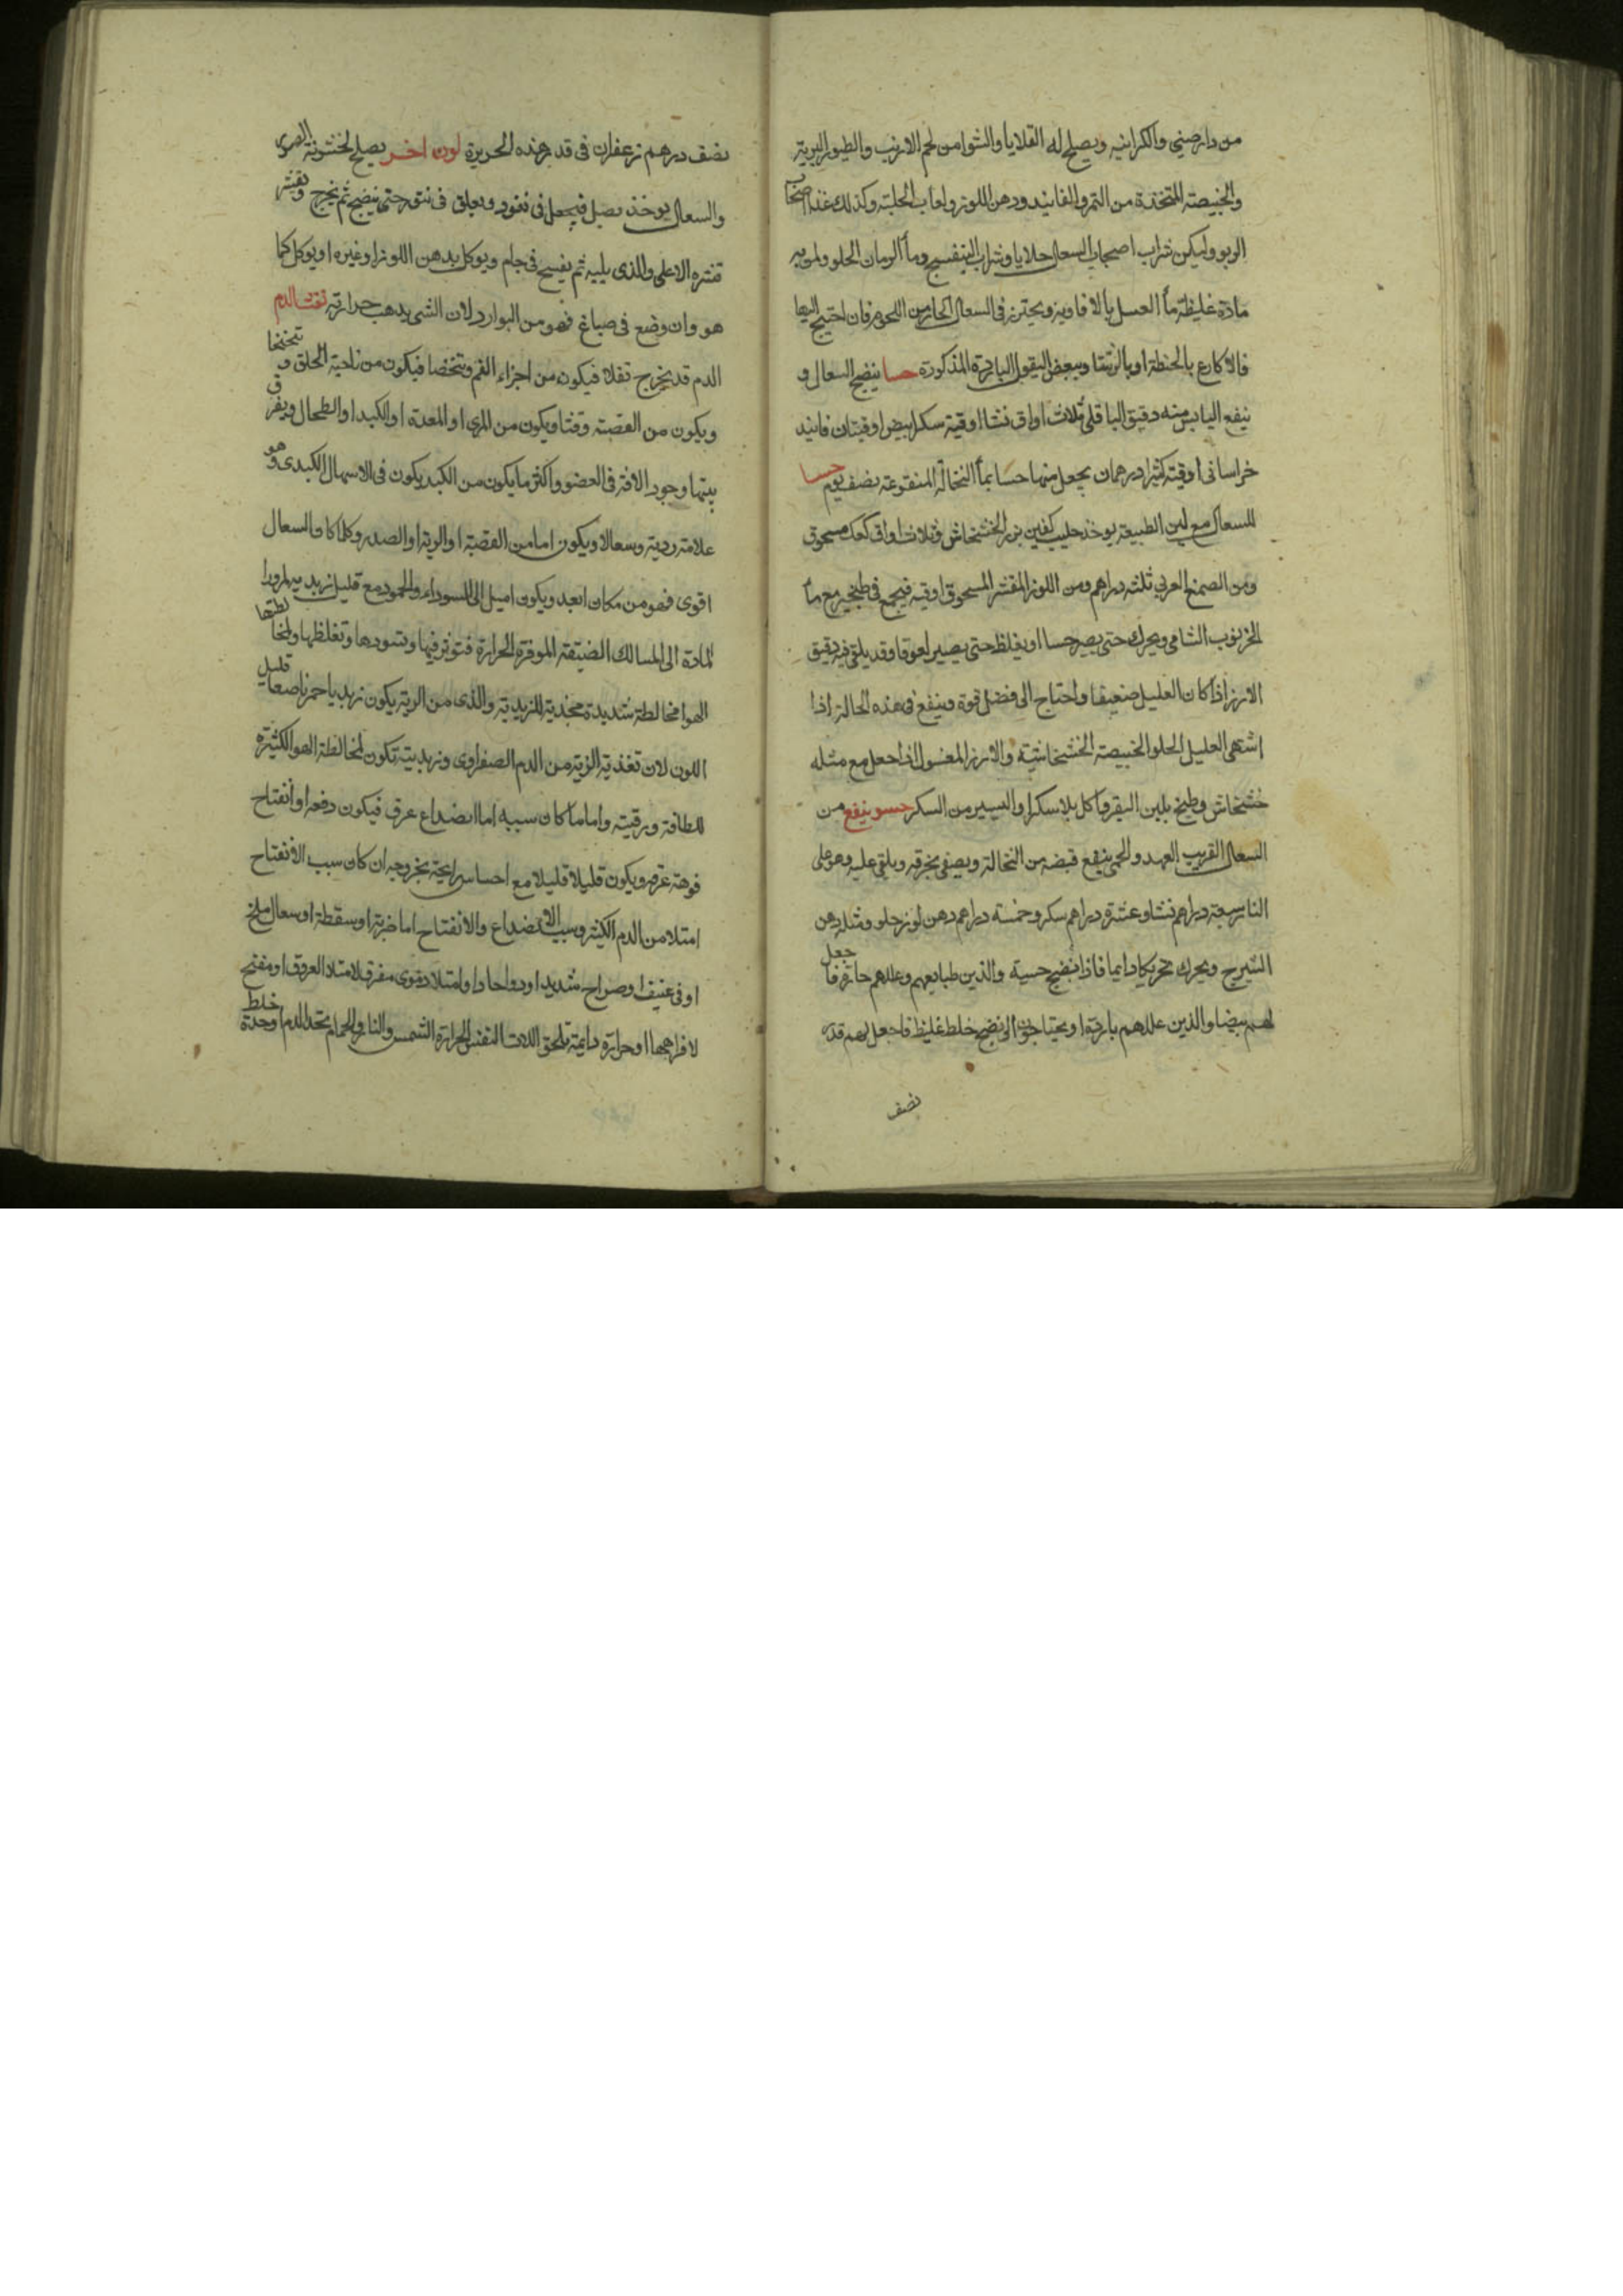 من دارصيني والكراثيه ويصلح له القلايا والشوا من لحم الارنب والطيور البرية
والخبيصة المتخذة من التمر والفانيد ودهن اللوز ولعاب الحلبة وكذلك غذا اصحاب
الربو وليكن شراب اصحاب السعال جلابا وشراب البنفسج وماٌ الرمان الحلو ولمن به
مادة غليظة ماٌ العسل بالافاويه ويحترز في السعال الحار من اللحوم فان احتيج اليها
فالاكارع بالحنطة او بالرشتا وببعض البقول الباردة المذكورة حسا ينضج السعال و
ينفع اليابس منه دقيق الباقلى ثلاث اواق نشا اوقية سكر ابيض اوقيتان فانيد
خراساني اوقية كثيرا درهمان يجعل منها حسا بماٌ النخالة المنقوعة نصف يوم حسا
للسعال مع لين الطبيعة يوخذ حليب كفين بزر الخشخاش وثلاث اواق كعك مسحوق
ومن الصمغ العربي ثلثه دراهم ومن اللوز المقشر المسحوق اوقيه فيجمع في طنجير مع ماٌ
الخرنوب الشامي ويحرك حتى يصير حسا او يغلظ حتى يصير لعوقا وقد يلقى فيه دقيق
الارز اذا كان العليل ضعيفا واحتاج الى فضل قوة وينفع في هذه الحالة اذا
اشتهى العليل الحلو الخبيصة الخشخاشية والارز المغسول اذا جعل مع مثله
خشخاش وطبخ بلبن البقر واكل بلا سكر او اليسير من السكر حسو ينفع من
السعال القريب العهد والحمى ينقع قبضه من النخالة ويصفى بخرقه ويلقى عليه وهو على
النار سبعة دراهم نشا وعشرة دراهم سكر وخمسة دراهم دهن لوز حلو ومثله دهن
الشيرج ويحرك تحريكا دايما فاذا انضج حسيه والذين طبايعهم وعللهم حارة فاجعل
لهم بيضا والذين عللهم باردة او يحتاجون الى نضج خلط غليظ فاجعل لهم قدر
نصف
نصف درهم زعفران في قدر هذه الحريرة لون اخر يصلح لخشونة الصدر
والسعال يوخذ بصل فيجعل في ويعلق في تنور حتى ينضج ثم يخرج وتقشر
قشره الاعلى والذي يليه ثم يفسح في جام ويوكل بدهن اللوز او غيره او يوكل كما
هو وان وضع في صباغ فهو من البوارد لان الشي يذهب حرارته نفث الدم
الدم قد يخرج تفلا فيكون من اجزاء الفم وتنخما فيكون من ناحية الحلق و تنحنحا
ويكون من القصبة وقيا ويكون من المرى او المعدة او الكبد او الطحال ويفرق
بينها وجود الافة في العضو واكثر ما يكون من الكبد يكون في الاسهال الكبدي وهو
علامة ردية وسعالا ويكون اما من القصبة او الرية او الصدر وكلما كان السعال
اقوى فهو من مكان ابعد ويكون اميل الى السوداء والجمود مع قليل زبديه لمرور
المادة الى المسالك الضيقة الموفرة الحرارة فتوثر فيها وتسودها وتغلظها ولمخالطتها
الهوا مخالطة شديدة للزبدية والذي من الرية يكون زبديا احمر ناصعا قليل
اللون لان تغذية الرية من الدم الصفراوي وزبديته تكون لمخالطة الهوا الكثيرة
للطافة ورقته واما ما كان سببه اما انصداع عرق فيكون دفعه او انفتاح
فوهة عرق ويكون قليلا قليلا مع احساس بخروجه ان كان سبب الانفتاح
امتلا من الدم الكثير وسبب الانصداع والانفتاح اما ضربة او سقطة او سعال ملح
او قى عنيف او صراخ شديد او دوا حادا او امتلا دموي مفرق لامتلا العروق او مفتح
لافراهها او حرارة دايمة تلحق الات النفس الحرارة الشمس والنار والحمام بحد الدم او حدة خلط